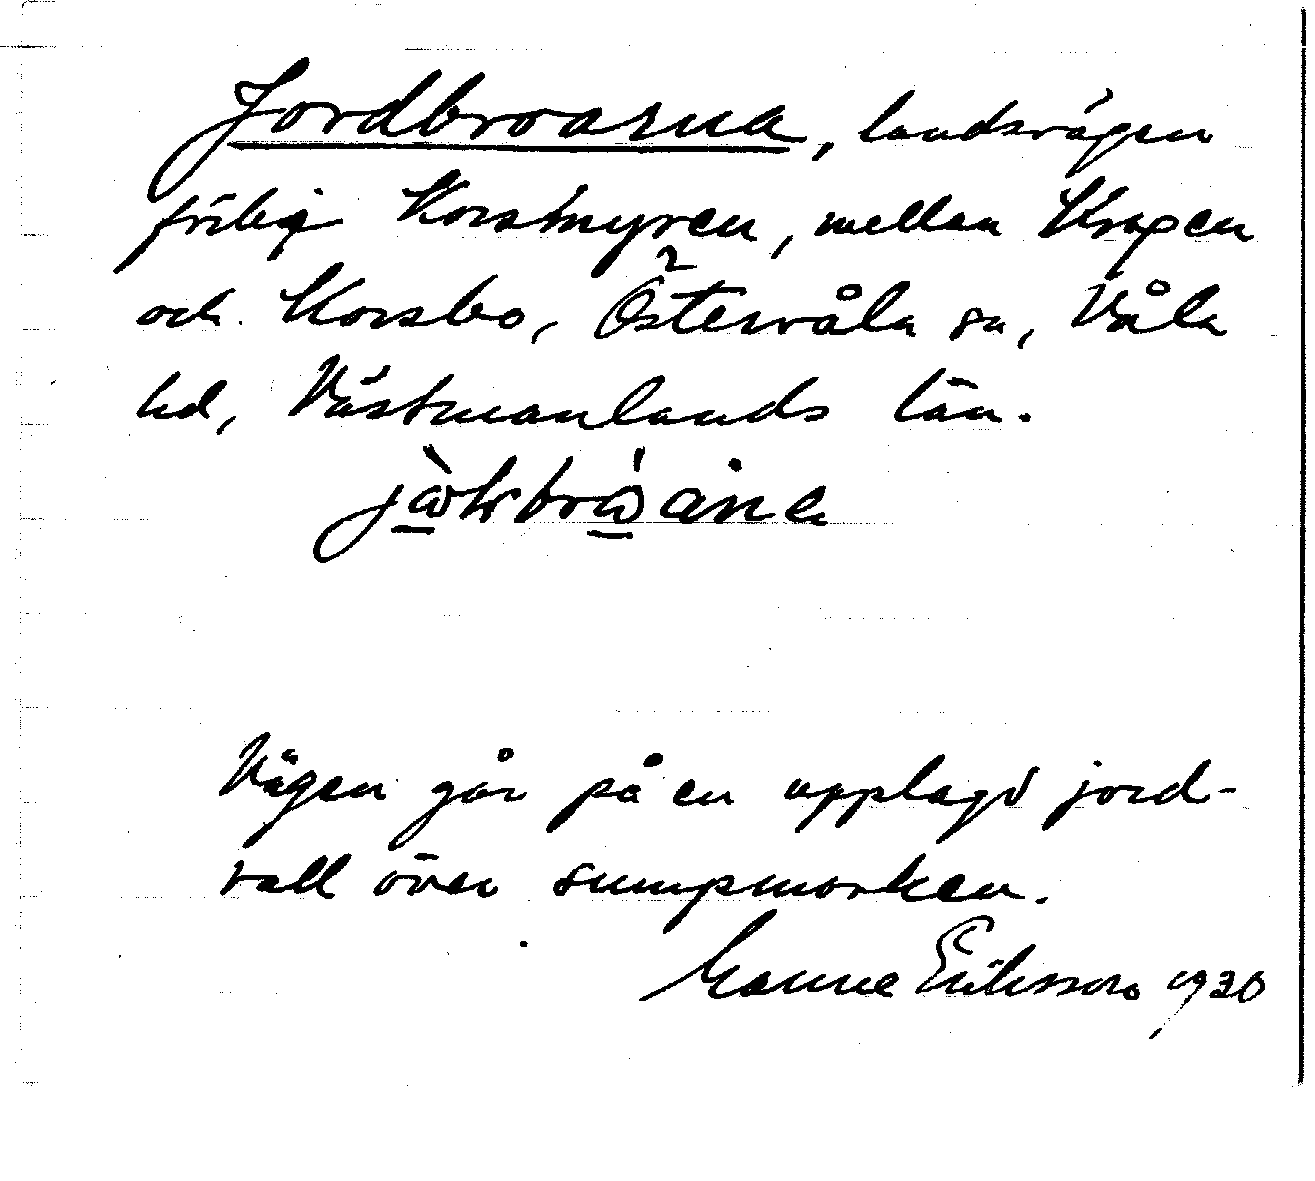 Jordbroarna, landsvägen
förbi Korsmyren, mellan Kragen
och Korsbo, Östervåla sn, Våla
hd, Västmanlands län.
Vägen går på en upplagd jord-
vall över sumpmarken.
Manne Eriksson 1930